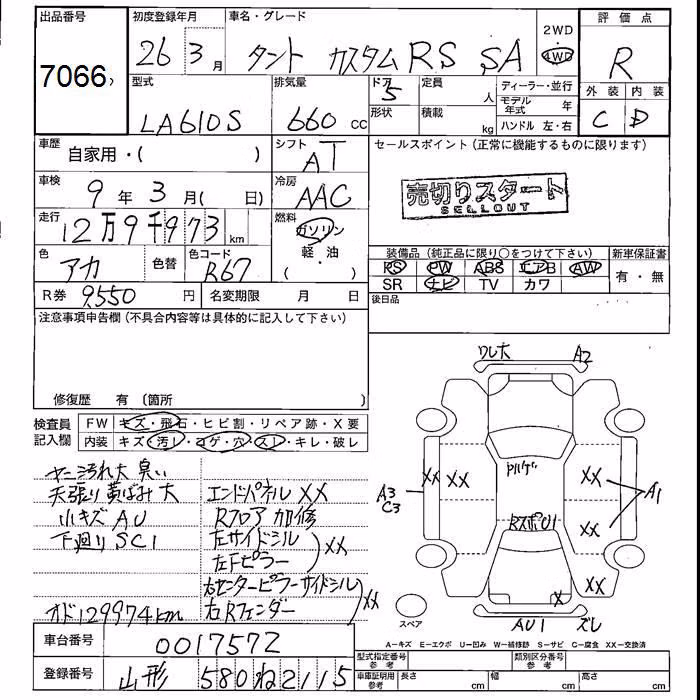 出品番号
7066
初度登録年月
26年3月
車名・グレード
タント カスタム RS SA
2WD
・
4WD
評価点
R
型式
LA610S
排気量
660 cc
ドア
5
形状
定員
人
積載
kg
ディーラー・並行
モデル年式 年
ハンドル 左・右
外装 内装
C D
車歴
自家用・( )
シフト
AT
セールスポイント(正常に機能するものに限ります)
売切りスタート
SELLOUT
車検
9年3月( 日)
冷房
AAC
走行
12万9千973km
燃料
ガソリン
軽・油
( ・ )
色
アカ
色替
色コード
R67
装備品(純正品に限り○をつけて下さい)
新車保証書
RS PW ABS エアB AW
SR ナビ TV カワ
有・無
R券 9,550円
名変期限 月 日
後日品
注意事項申告欄(不具合内容等は具体的に記入して下さい)
修復歴 有(箇所 )
検査員記入欄
FW キズ・飛石・ヒビ割・リペア跡・X要
内装 キズ・汚レ・コゲ・穴・スレ・キレ・破レ
ヤニ汚れ大 臭い
天張り黄ばみ大
小キズ AU
下廻り SC1
オド129974km
エンドパネル XX
Rフロア 加修
左サイドシル
左Fピラー
XX
右センターピラーサイドシル
右Rフェンダー
XX
ワレ大 A2
A3
C3
XX XX
XX
XX
XX
A1
X
AU1 ズレ
スペア
A－キズ E－エクボ U－凹み W－補修跡 S－サビ C－腐食 XX－交換済
車台番号
0017572
登録番号
山形 580 ね 2115
型式指定番号
参考
類別区分番号
参考
車庫証明用
参考
長さ cm
幅 cm
高さ cm